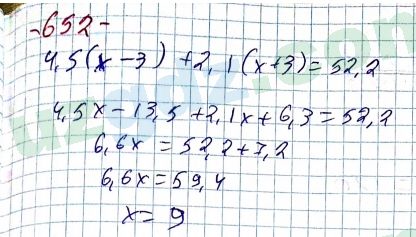 -652-
4,5(x-3)+2,1(x+3)=52,2
4,5x-13,5+2,1x+6,3=52,2
6,6x=52,2+7,2
6,6x=59,4
x=9